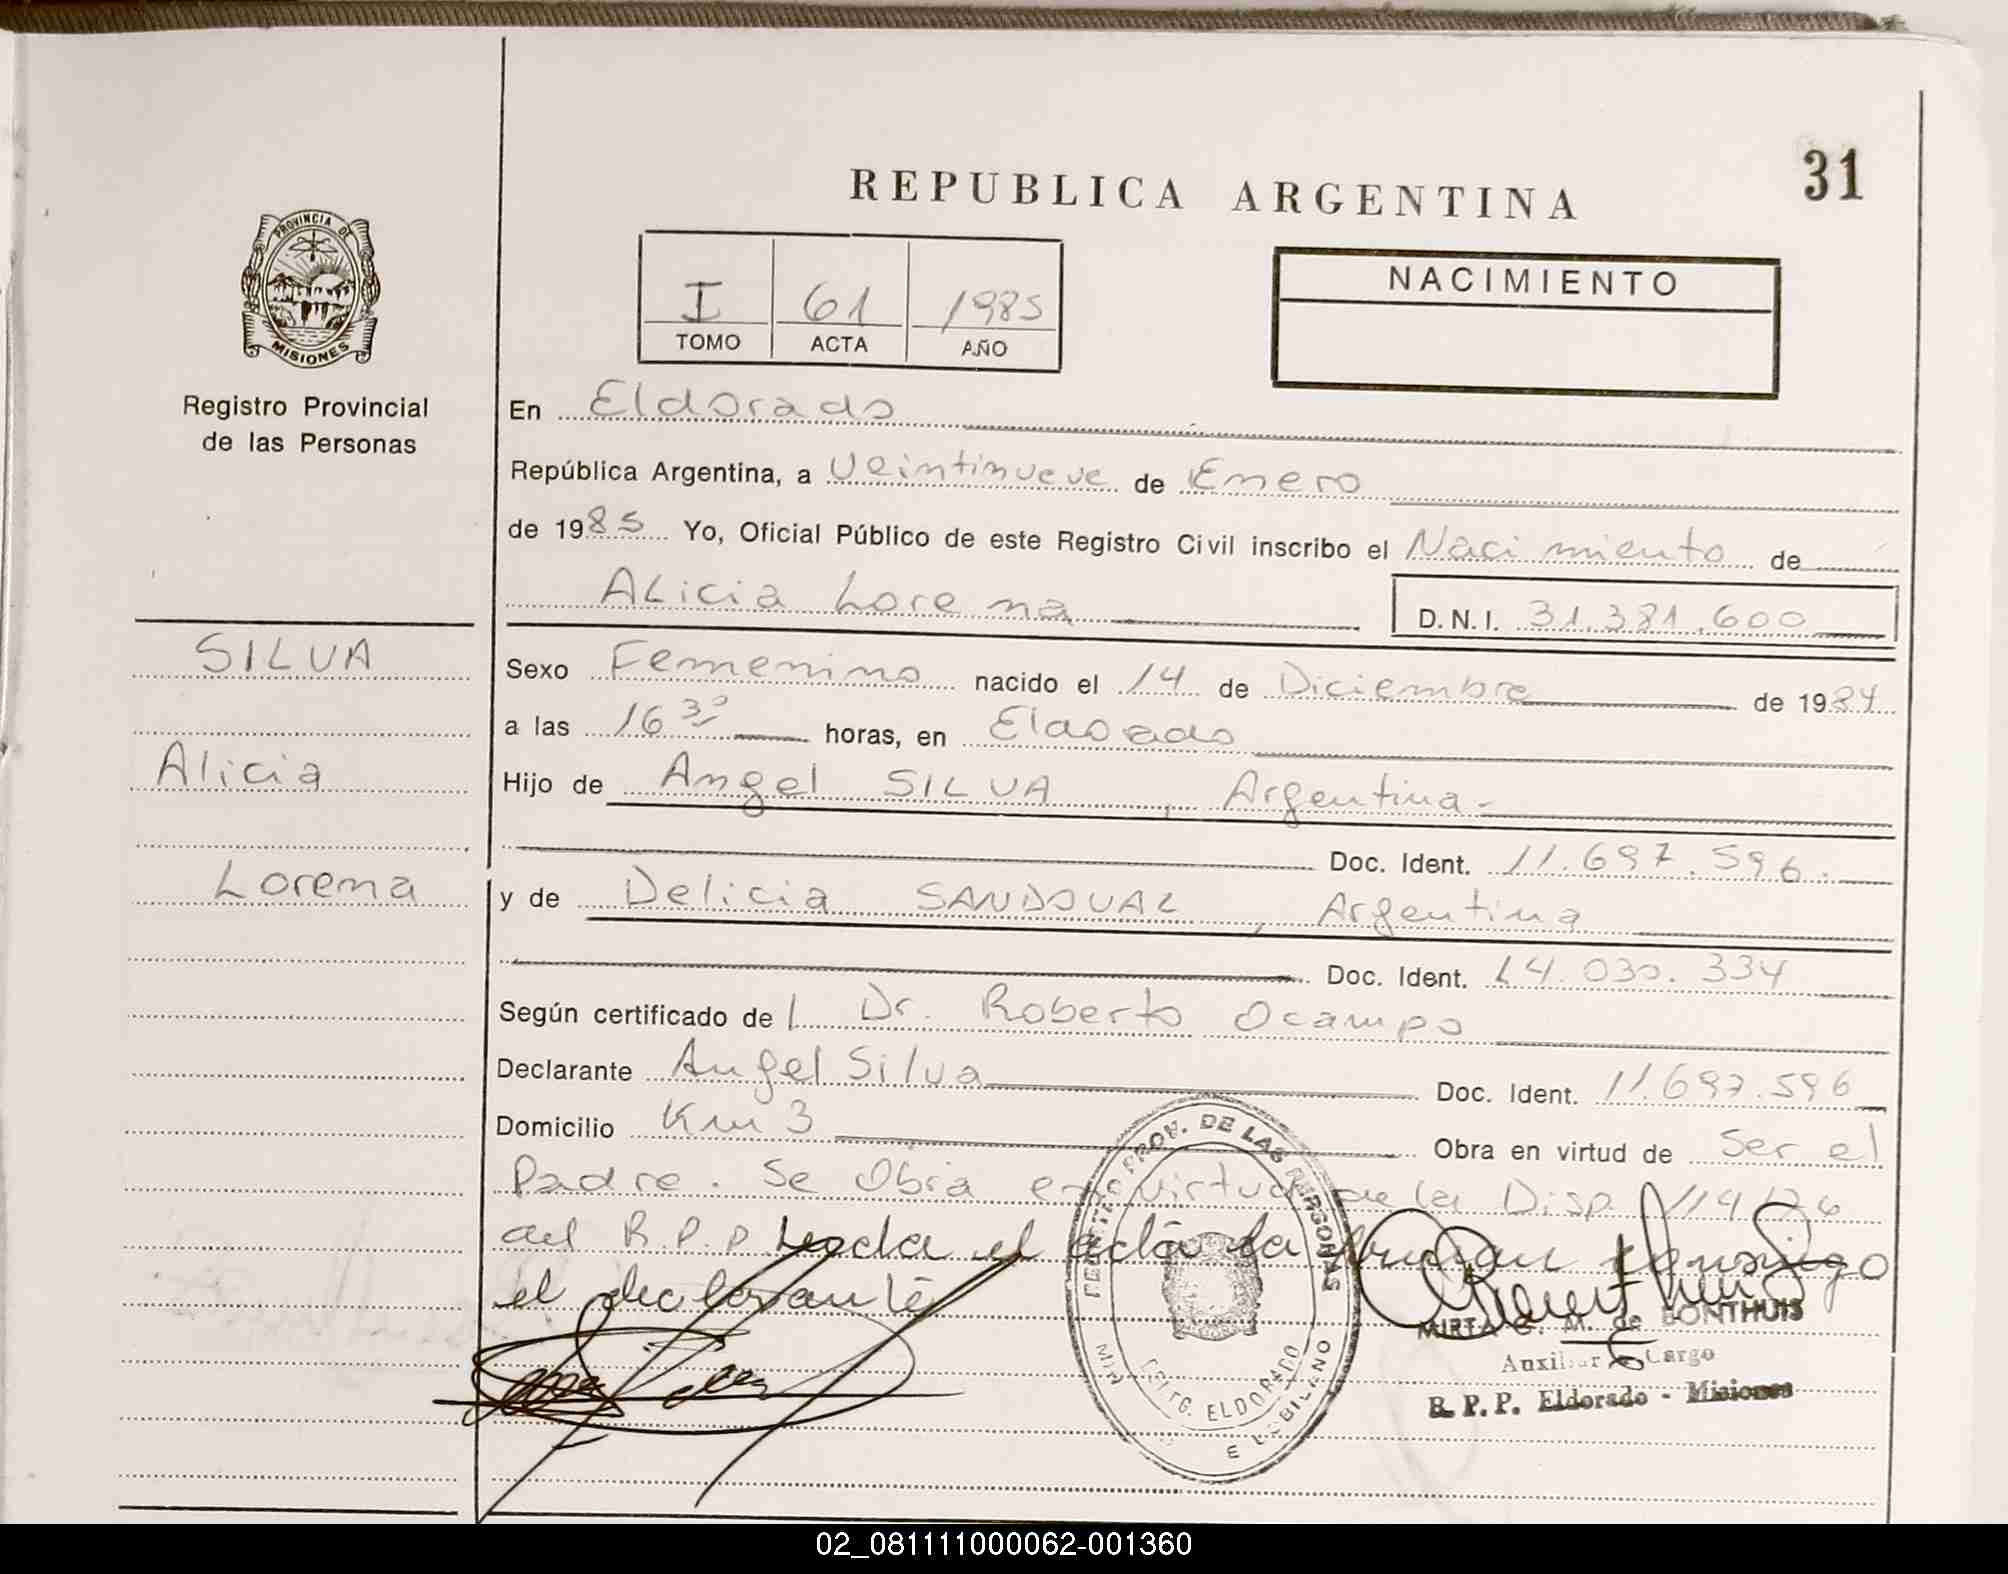 REPUBLICA ARGENTINA
31
PROVINCIA DE
MISIONES
Registro Provincial
de las Personas
I 61 1985
TOMO ACTA AÑO
NACIMIENTO
En Eldorado
República Argentina, a Veintinueve de Enero
de 1985 Yo, Oficial Público de este Registro Civil inscribo el Nacimiento de
Alicia Lorena D.N.I. 31.381.600
SILVA
Alicia
Lorena
Sexo Femenino nacido el 14 de Diciembre de 1984
a las 16 30 horas, en Eldorado
Hijo de Angel SILVA, Argentina-
Doc. Ident. 11.697.596.
y de Delicia SANDOVAL, Argentina
Doc. Ident. 14.030.334
Según certificado de l Dr. Roberto Ocampo
Declarante Angel Silva Doc. Ident. 11.697.596
Domicilio Km 3 Obra en virtud de Ser el
Padre. Se Obra en virtud de la Disp. 114/76
del R.P.P Leida el acta la firman conmigo
el declarante
PROV. DE LAS PERSONAS
ELDORADO
MIRTA G. M. de BONTHUIS
Auxiliar a Cargo
R. P. P. Eldorado - Misiones
02_081111000062-001360